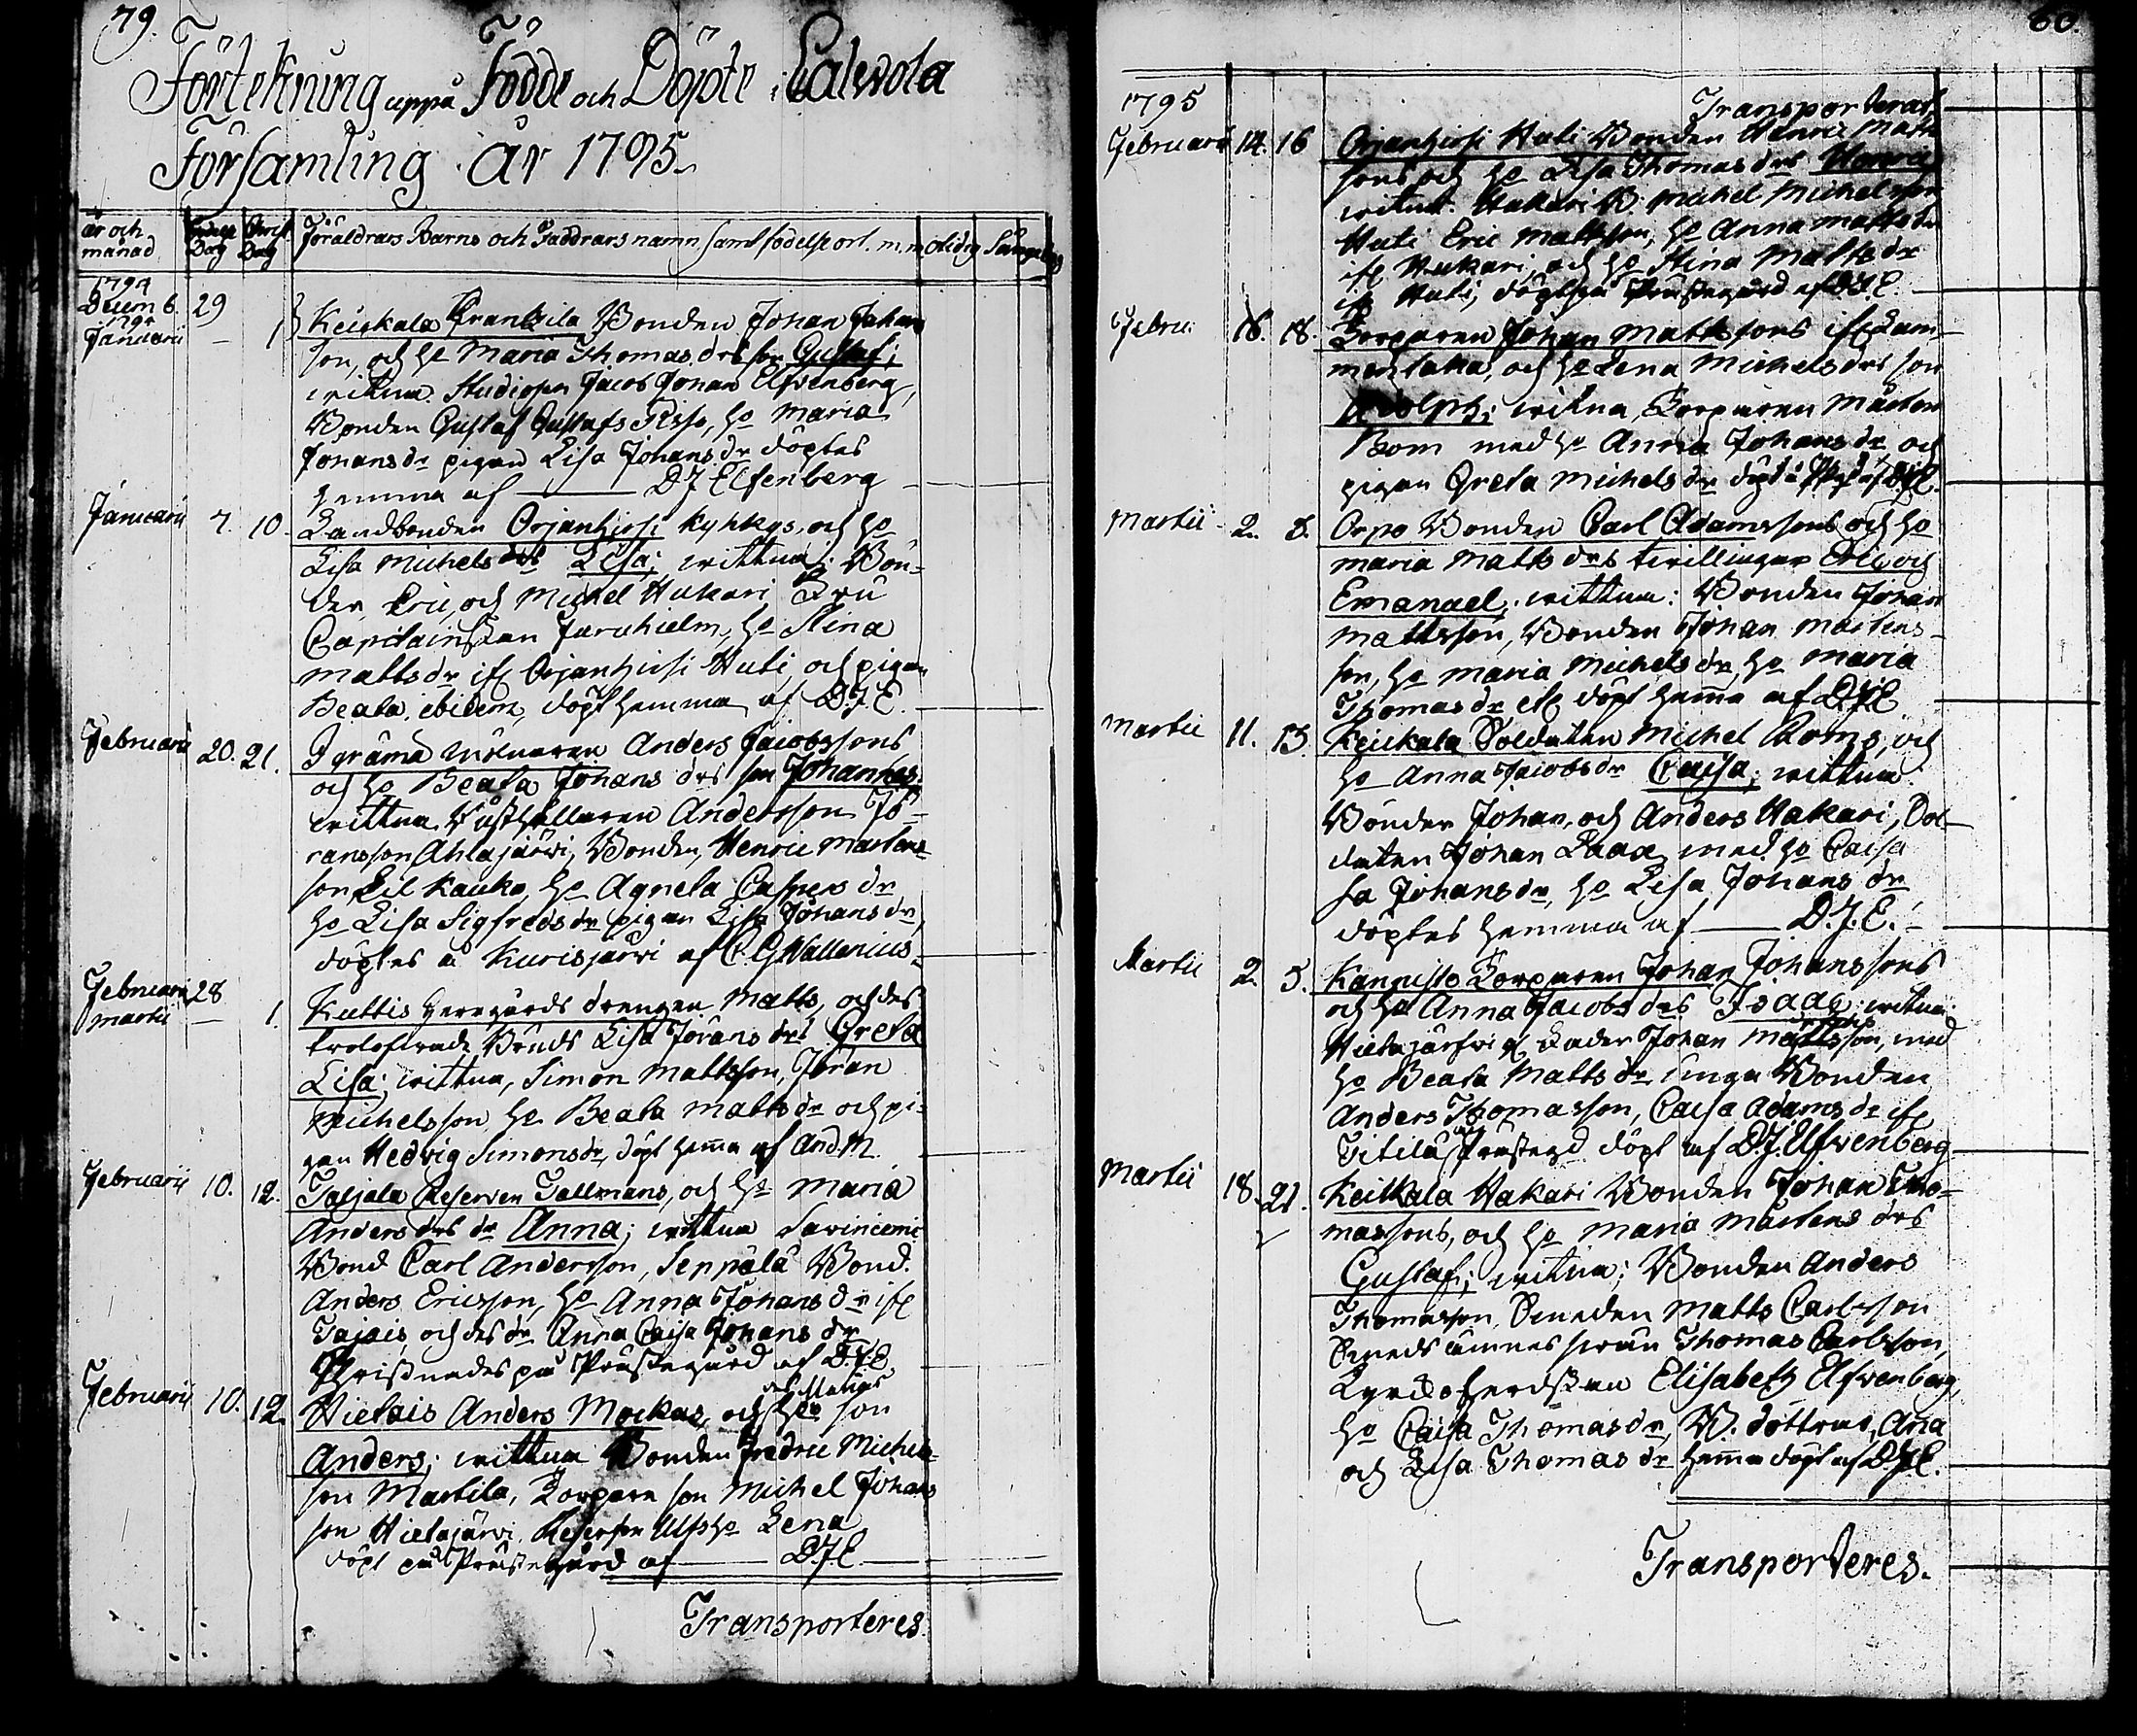 79.
Förtekning uppå Födde och Döpte i Calvola
Församling år 1795.
år och månad Födelse Dag Christ. Dag Föräldrars Barns och Faddrars namn samt födelse ort. m.m. otidig
1794
Decemb. 29
1795
Januarii — 1 Keickala Frantzila Bonden Johan Johans
son, och ho Maria Thomas drs son Gustaf;
witna. Studiosen Jacob Johan Elfvenberg,
Bonden Gustaf Gustafs Sipo, ho Maria
Johansdr pigan Lisa Johansdr döptes
hemma af — DJ Elfvenberg
Januarii 7. 10. Landbonden Orjanhirsi Kyhkys, och ho
Lisa Michelsdrs Lisa; wittna: Bön-
der Eric, och Michel Hakari Fru
Capitainskan Jarnhielm, ho Stina
Mattsdr ifr. Orjanhirsi Huti, och pigan
Beata ibidem, döpt hemma af D.J.E.
Februarii 20. 21. Igräma mölnaren Anders Jacobssons
och ho Beata Johans drs son Johannes.
wittna Rusthållaren Andersson Jö-
ransson Ahlajärwi, Bonden Henric Mårtens-
son Lil Kauko, ho Agneta Caspers dr
ho Lisa Sigfredsdr pigan Lisa Johansdr,
döptes å Kurisjärwi af C. G. Wallenius.
Februarii 28
Martii — 1. Kuttis herregårds drengen Matts, och des
trolofvade Bruds Lisa Jörans drs Greta
Lisa; wittna, Simon Mattsson, Jöran
Michelsson ho Beata Mattsdr och pi-
gan Hedvig Simonsdr, döpt hemma af And. M.
Februarii 10. 12. Taljala Reserven Tallmans, och ho Maria
Andersdrs dr Anna; wittna Savinicemi
Bond Carl Andersson, Seppälä Bond.
Anders Ericsson, ho Anna Johans dr ifr
Tajais, och des dr Anna Caisa Johans dr
Christnades på Prästegård af D.J.E.
Februarii 10. 12. Vietais Anders Mockas, och ho son
Anders; wittna Bonden Fredric Michels-
son Martila, Torpare son Michel Johans
son Hietajärwi, Reserven Ulfs ho Lena
döpt på Prästegård af — D.J.E.
Transporteres.
80.
1795 Transporterat
Februarii 14. 16 Orjanhirsi Huti Bonden Henric Matts
sons och ho Lisa Thomasdrs Henric
witnat. Hakari B. Michel Michelsson
Huti Eric Mattsson, ho Anna Mattsdr
ifr Hakari, och ho Stina Mattsdr
ifr Huti, döpt på Prästegård af D.J.E.
Februarii 16. 18. Torparen Johan Mattssons ifr Lam-
menlaka, och ho Lena Michelsdrs son
Adolph; witna, Torparen Mårten
Bom med ho Anna Johansdr och
pigan Greta Michelsdr döpt af D.J.E.
Martii 2. 3. Orpo Bonden Carl Adamssons och ho
Maria Matts drs tvillingar Eric och
Emanael; wittna: Bonden Johan
Mattsson, Bonden Johan Mårtens-
son, ho Maria Michelsdr, ho Maria
Thomasdr etc döpt hemma af D.J.E.
Martii 11. 13. Keickala Soldaten Michel Roms, och
ho Anna Jacobsdr Caisa; wittna
Bönder Johan, och Anders Hakari, Sol-
daten Johan Laax med ho Caisa
sa Johansdr, ho Lisa Johans dr
döptes hemma af — D.J.E.
Martii 2. 3. Kannisto Torparen Johan Johanssons
och ho Anna Jacobs drs Isaac; witna
Hietajärfwi Johan Mårtensson, med
ho Beata Matts dr, unga Bonden
Anders Thomasson, Caisa Adamsdr ifr
Titilä, Prästegd döpt af D.J. Elfvenberg
Martii 18. 21. Keickala Hakari Bonden Johan Tho-
massons, och ho Maria Mårtens drs
Gustaf; witna; Bonden Anders
Thomasson, Smeden Matts Carlsson
Smeds ämnes swän Thomas Carlsson,
Elisabeth Elfvenberg,
ho Caisa Thomasdr, B. döttrar, Aria
och Lisa Thomas dr hemma döpt af D.J.E.
Transporteres.